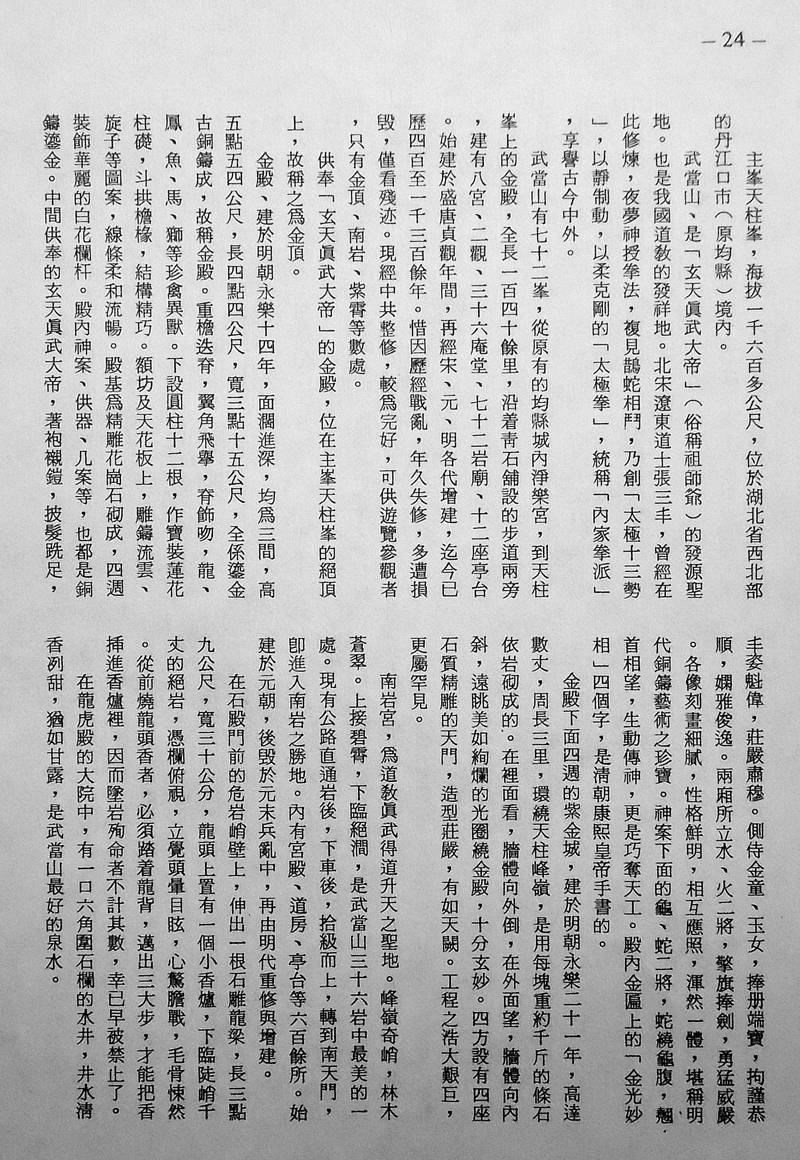 — 24 —
主峯天柱峯，海拔一千六百多公尺，位於湖北省西北部
的丹江口市（原均縣）境內。
武當山、是「玄天眞武大帝」（俗稱祖師爺）的發源聖
地。也是我國道教的發祥地。北宋遼東道士張三丰，曾經在
此修煉，夜夢神授拳法，複見鵲蛇相鬥，乃創「太極十三勢
」，以靜制動，以柔克剛的「太極拳」，統稱「內家拳派」
，享譽古今中外。
武當山有七十二峯，從原有的均縣城內淨樂宮，到天柱
峯上的金殿，全長一百四十餘里，沿着靑石舖設的步道兩旁
，建有八宮、二觀、三十六庵堂、七十二岩廟、十二座亭台
。始建於盛唐貞觀年間，再經宋、元、明各代增建，迄今已
歷四百至一千三百餘年。惜因歷經戰亂，年久失修，多遭損
毀，僅看殘迹。現經中共整修，較爲完好，可供遊覽參觀者
，只有金頂、南岩、紫霄等數處。
供奉「玄天眞武大帝」的金殿，位在主峯天柱峯的絕頂
上，故稱之爲金頂。
金殿、建於明朝永樂十四年，面濶進深，均爲三間，高
五點五四公尺，長四點四公尺，寬三點十五公尺，全係鎏金
古銅鑄成，故稱金殿。重檐迭脊，翼角飛舉，脊飾吻，龍、
鳳、魚、馬、獅等珍禽異獸。下設圓柱十二根，作寶裝蓮花
柱礎，斗拱檐椽，結構精巧。額坊及天花板上，雕鑄流雲、
旋子等圖案，線條柔和流暢。殿基爲精雕花崗石砌成，四週
裝飾華麗的白花欄杆。殿內神案、供器、几案等，也都是銅
鑄鎏金。中間供奉的玄天眞武大帝，著袍襯鎧，披髮跣足，
丰姿魁偉，莊嚴肅穆。側侍金童、玉女，捧册端寶，拘謹恭
順，嫻雅俊逸。兩廂所立水、火二將，擎旗捧劍，勇猛威嚴
。各像刻畫細膩，性格鮮明，相互應照，渾然一體，堪稱明
代銅鑄藝術之珍寶。神案下面的龜、蛇二將，蛇繞龜腹，翹
首相望，生動傳神，更是巧奪天工。殿內金匾上的「金光妙
相」四個字，是淸朝康熙皇帝手書的。
金殿下面四週的紫金城，建於明朝永樂二十一年，高達
數丈，周長三里，環繞天柱峰嶺，是用每塊重約千斤的條石
依岩砌成的。在裡面看，牆體向外倒，在外面望，牆體向內
斜，遠眺美如絢爛的光圈繞金殿，十分玄妙。四方設有四座
石質精雕的天門，造型莊嚴，有如天闕。工程之浩大艱巨，
更屬罕見。
南岩宮，爲道教眞武得道升天之聖地。峰嶺奇峭，林木
蒼翠。上接碧霄，下臨絕澗，是武當山三十六岩中最美的一
處。現有公路直通岩後，下車後，拾級而上，轉到南天門，
卽進入南岩之勝地。內有宮殿、道房、亭台等六百餘所。始
建於元朝，後毀於元末兵亂中，再由明代重修與增建。
在石殿門前的危岩峭壁上，伸出一根石雕龍梁，長三點
九公尺，寬三十公分，龍頭上置有一個小香爐，下臨陡峭千
丈的絕岩，憑欄俯視，立覺頭暈目眩，心驚膽戰，毛骨悚然
。從前燒龍頭香者，必須踏着龍背，邁出三大步，才能把香
揷進香爐裡，因而墜岩殉命者不計其數，幸已早被禁止了。
在龍虎殿的大院中，有一口六角圍石欄的水井，井水淸
香冽甜，猶如甘露，是武當山最好的泉水。